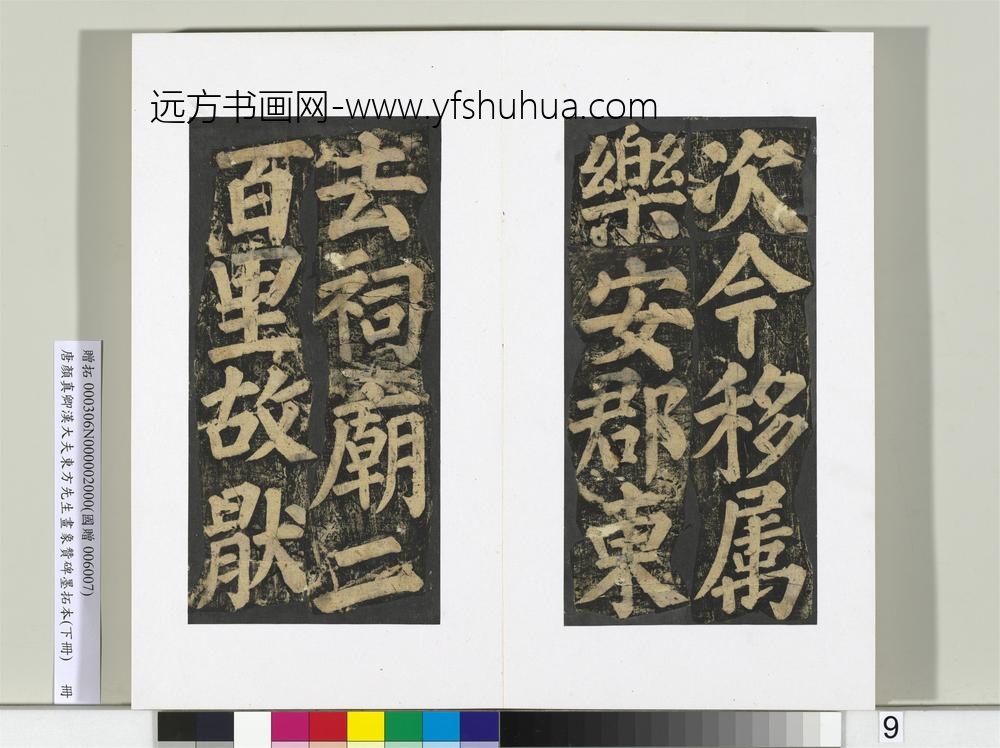 远方书画网-www.yfshuhua.com
次今移属
樂安郡東
去祠廟二
百里故猒
贈拓 000306N000002000(國贈 006007)
唐顏真卿漢大夫東方先生畫象贊碑墨拓本(下冊) 冊
9